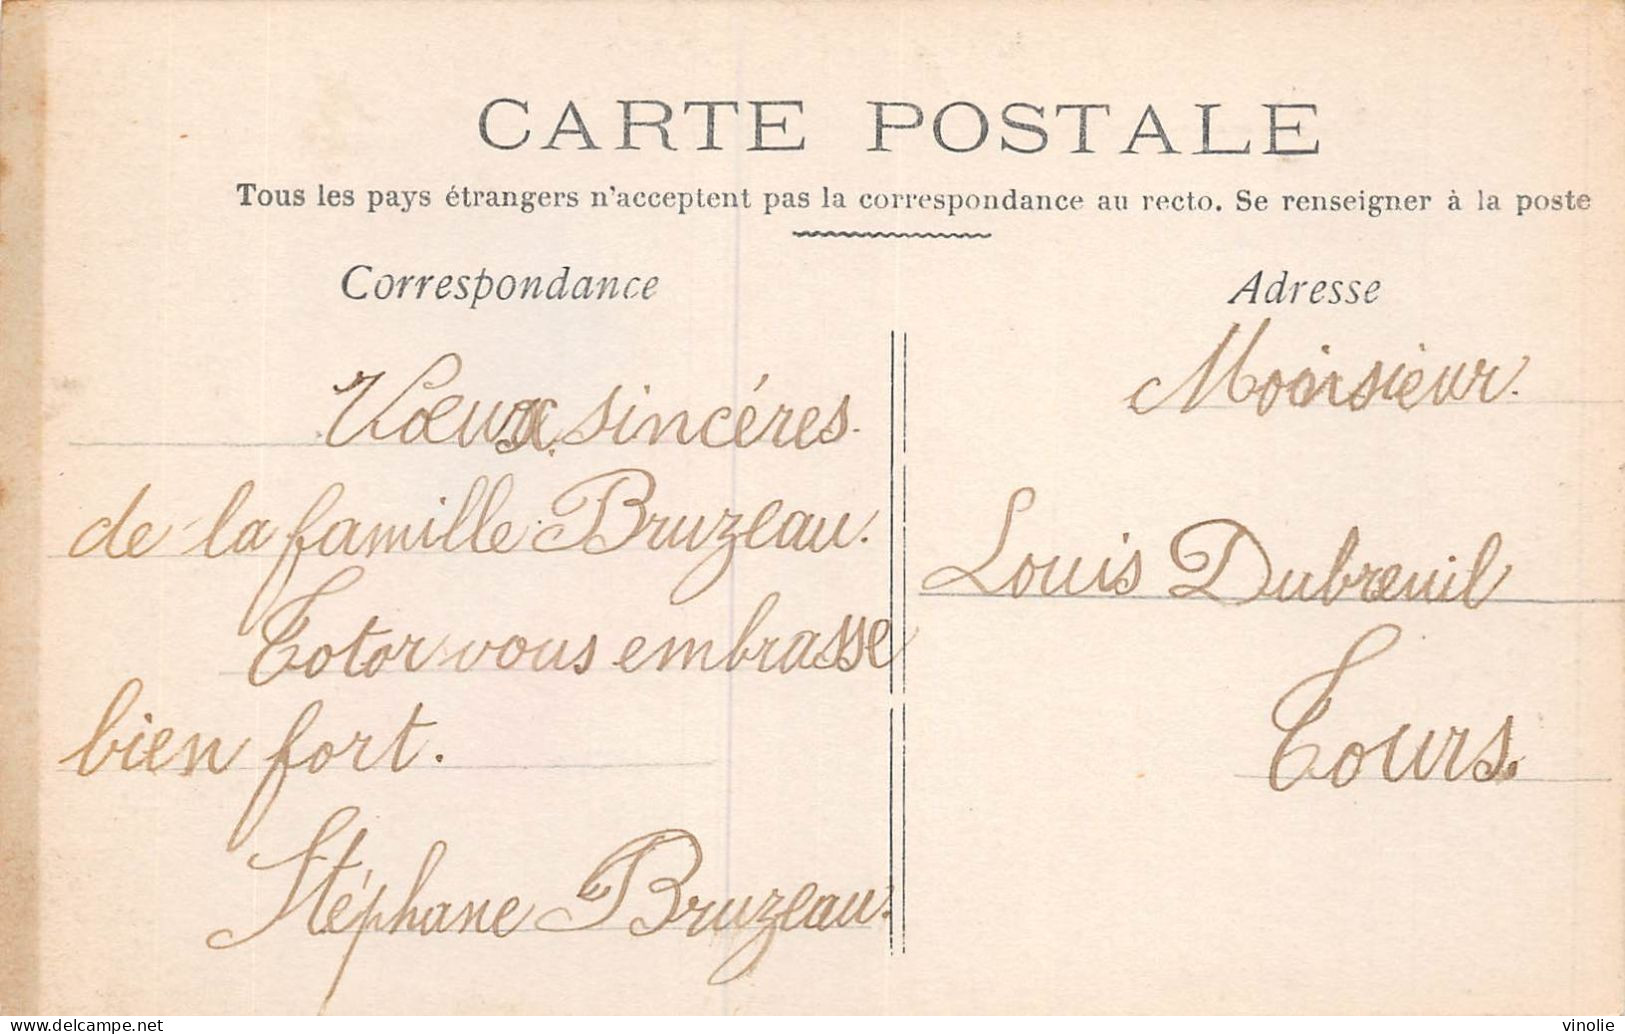 CARTE POSTALE
Tous les pays étrangers n'acceptent pas la correspondance au recto. Se renseigner à la poste
Correspondance
Vœux sincéres.
de la famille Bruzeau.
Totor vous embrasse
bien fort.
Stéphane Bruzeau.
Adresse
Monsieur.
Louis Dubreuil
Tours.
www.delcampe.net
vinolie